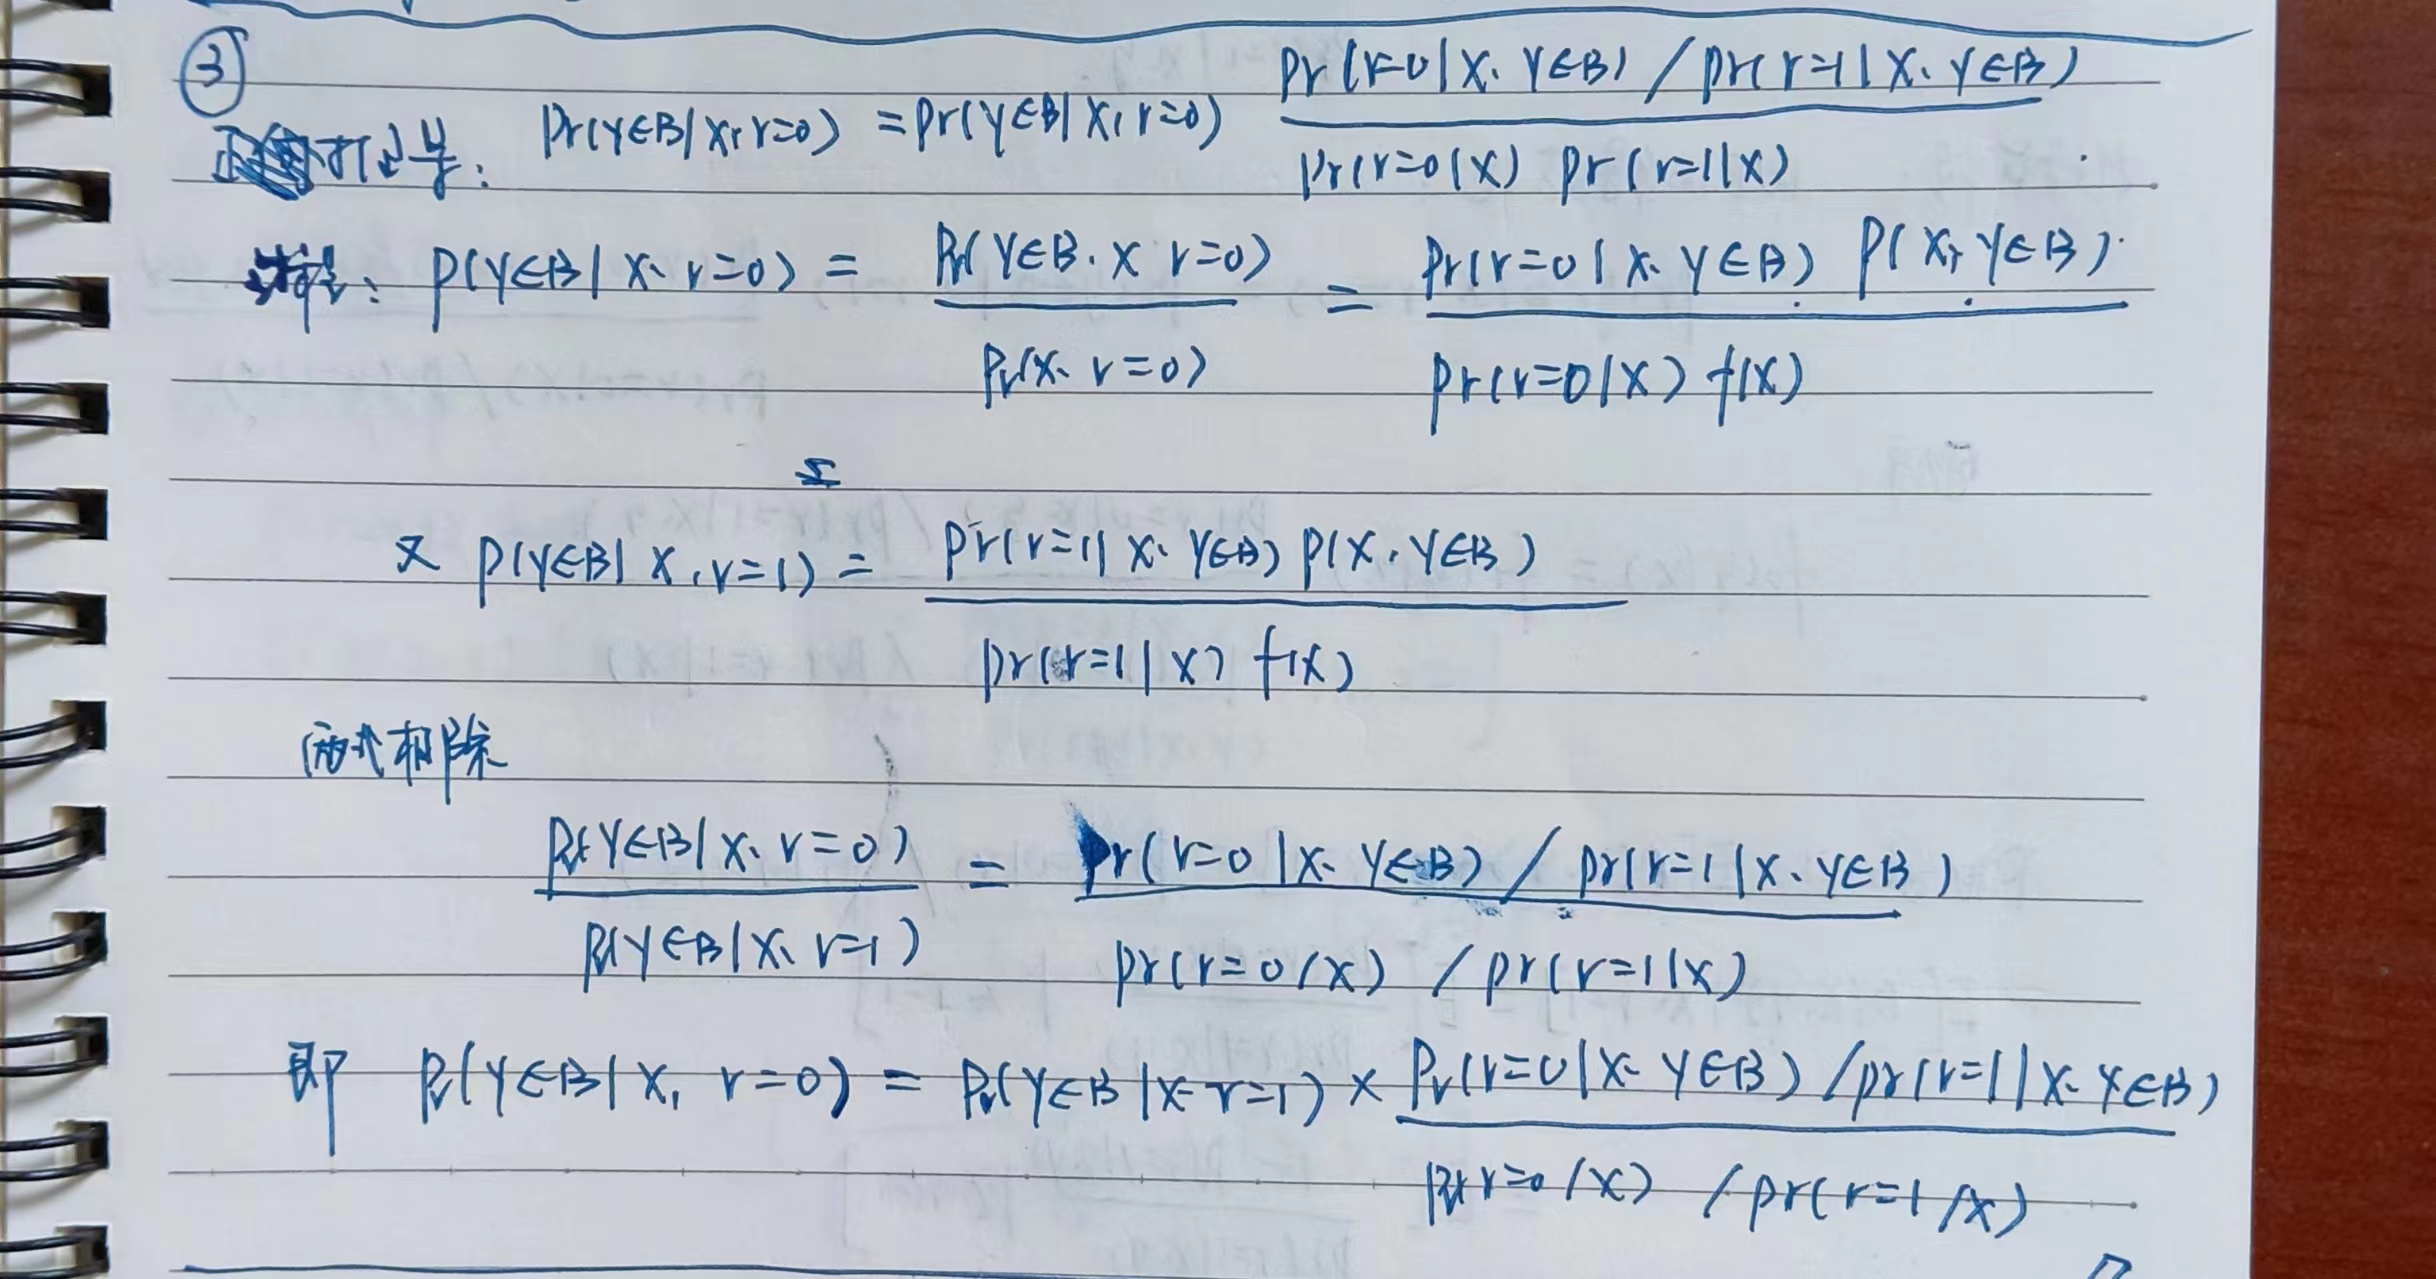 ③
Pr(r=0|X、Y∈B) / Pr(r=1|X、Y∈B)
Pr(Y∈B|X, r=0) = Pr(Y∈B|X, r=0)
Pr(r=0|X) Pr(r=1|X)
P(Y∈B|X、r=0) = Pr(Y∈B、X r=0) = Pr(r=0|X、Y∈B) P(X, Y∈B)
Pr(X、r=0) Pr(r=0|X) f(X)
又 P(Y∈B|X, r=1) = Pr(r=1|X、Y∈B) P(X, Y∈B)
Pr(r=1|X) f(X)
两式相除
Pr(Y∈B|X、r=0) = Pr(r=0|X、Y∈B) / Pr(r=1|X、Y∈B)
Pr(Y∈B|X、r=1) Pr(r=0|X) / Pr(r=1|X)
即 Pr(Y∈B|X, r=0) = Pr(Y∈B|X、r=1) × Pr(r=0|X、Y∈B) / Pr(r=1|X、Y∈B)
Pr(r=0|X) / Pr(r=1|X)